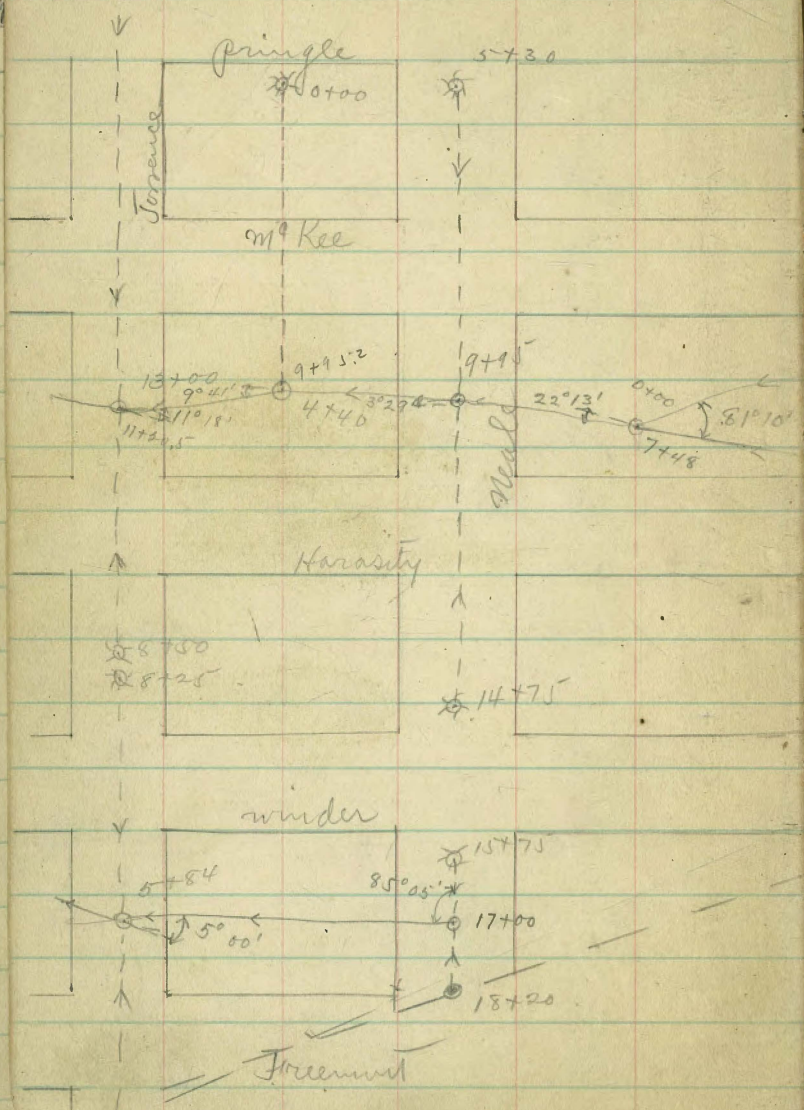 pringle
5+30
0+00
Torrence
Mc Kee
9+95
9+95.2
13+00
9°41'
11°18'
4+40
3°29'
22°13'
0+00
81°10'
7+48
Neals
Harasity
8+50
8+25
14+75
winder
15+75
5+84
85°05'
5°00'
17+00
18+20
Freemont